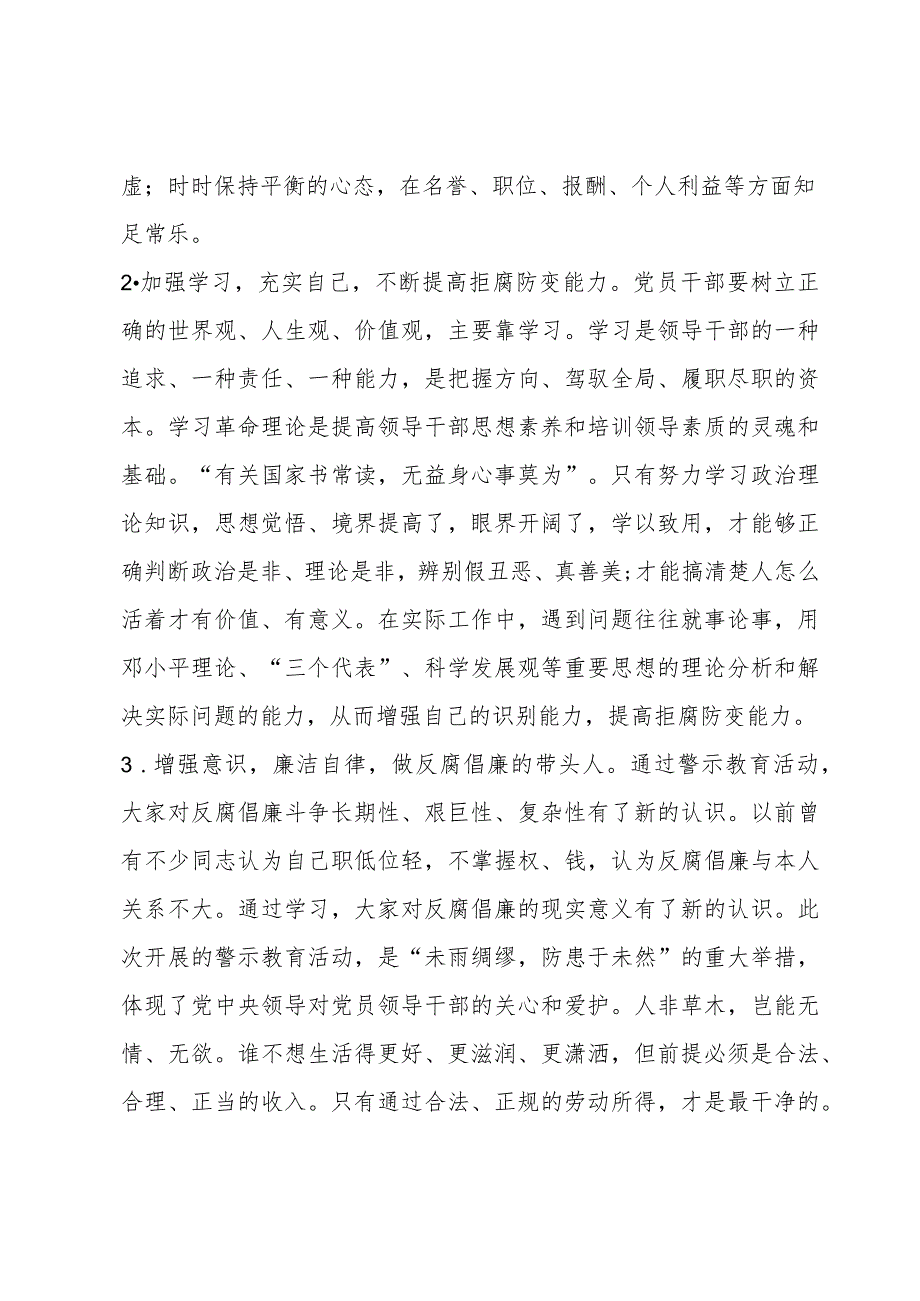 虚；时时保持平衡的心态，在名誉、职位、报酬、个人利益等方面知
足常乐。
2•加强学习，充实自己，不断提高拒腐防变能力。党员干部要树立正
确的世界观、人生观、价值观，主要靠学习。学习是领导干部的一种
追求、一种责任、一种能力，是把握方向、驾驭全局、履职尽职的资
本。学习革命理论是提高领导干部思想素养和培训领导素质的灵魂和
基础。“有关国家书常读，无益身心事莫为”。只有努力学习政治理
论知识，思想觉悟、境界提高了，眼界开阔了，学以致用，才能够正
确判断政治是非、理论是非，辨别假丑恶、真善美;才能搞清楚人怎么
活着才有价值、有意义。在实际工作中，遇到问题往往就事论事，用
邓小平理论、“三个代表”、科学发展观等重要思想的理论分析和解
决实际问题的能力，从而增强自己的识别能力，提高拒腐防变能力。
3 .增强意识，廉洁自律，做反腐倡廉的带头人。通过警示教育活动，
大家对反腐倡廉斗争长期性、艰巨性、复杂性有了新的认识。以前曾
有不少同志认为自己职低位轻，不掌握权、钱，认为反腐倡廉与本人
关系不大。通过学习，大家对反腐倡廉的现实意义有了新的认识。此
次开展的警示教育活动，是“未雨绸缪，防患于未然”的重大举措，
体现了党中央领导对党员领导干部的关心和爱护。人非草木，岂能无
情、无欲。谁不想生活得更好、更滋润、更潇洒，但前提必须是合法、
合理、正当的收入。只有通过合法、正规的劳动所得，才是最干净的。